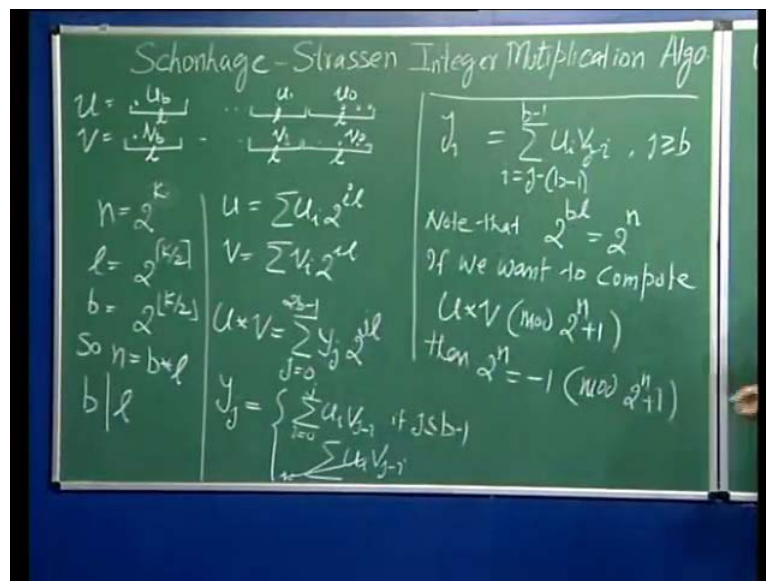 Schonhage-Strassen Integer Mutiplication Algo.
U = u_b ·· u_1 u_0
l l l
V = v_b - · v_1 v_0
l l l
n = 2^k
l = 2^⌈k/2⌉
b = 2^⌊k/2⌋
So n = b * l
b | l
U = ∑ u_i 2^{il}
V = ∑ v_i 2^{il}
U * V = ∑_{j=0}^{2b-1} y_j 2^{jl}
y_j = { ∑_{i=0}^{j} u_i v_{j-i} if j ≤ b-1
∑ u_i v_{j-i}
y_j = ∑_{i=j-(b-1)}^{b-1} u_i v_{j-i}, j ≥ b
Note that 2^{bl} = 2^n
If we want to compute
U * V (mod 2^n + 1)
then 2^n = -1 (mod 2^n + 1)